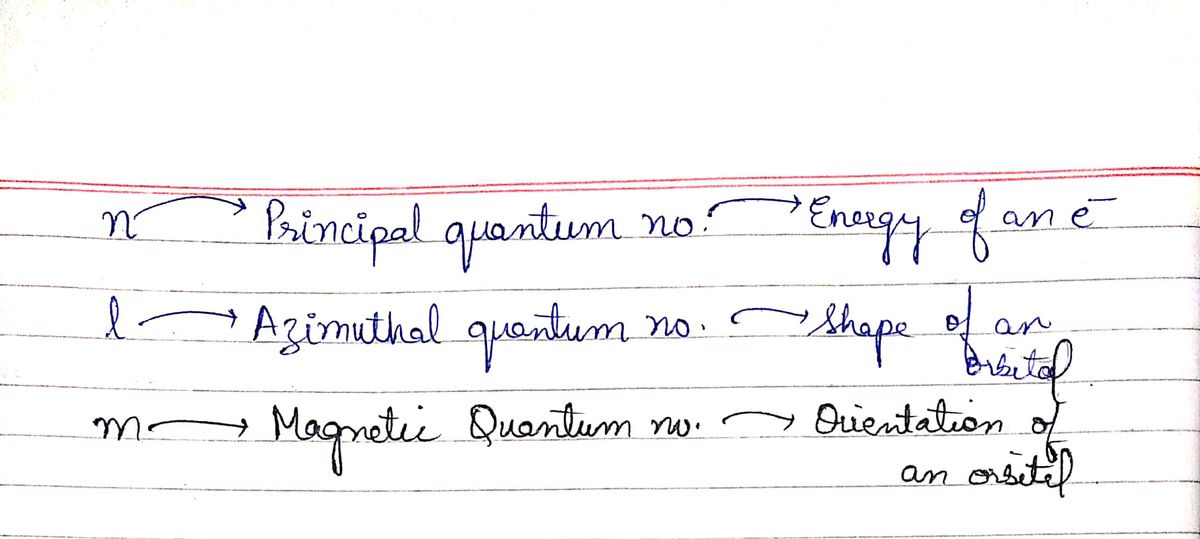 n → Principal quantum no. → Energy of an e⁻
l → Azimuthal quantum no. → Shape of an
orbital
m → Magnetic Quantum no. → Orientation of
an orbital